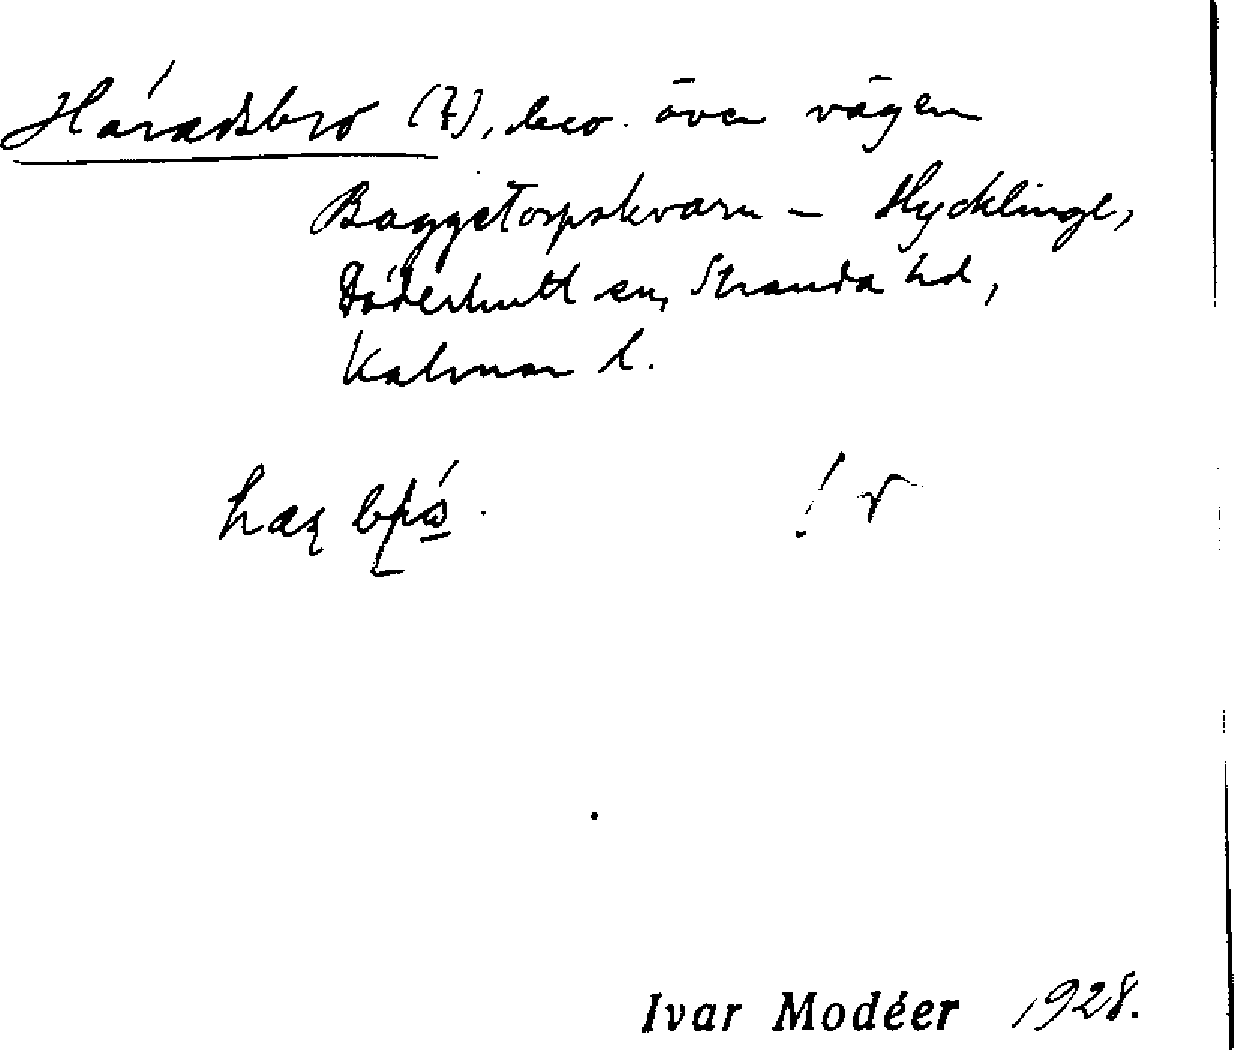 Háradsbro (7), bro över vägen
Baggetorpskvarn – Hycklinge,
Döderhult sn, Stranda hd,
Kalmar l.
! r
Ivar Modéer 1928.